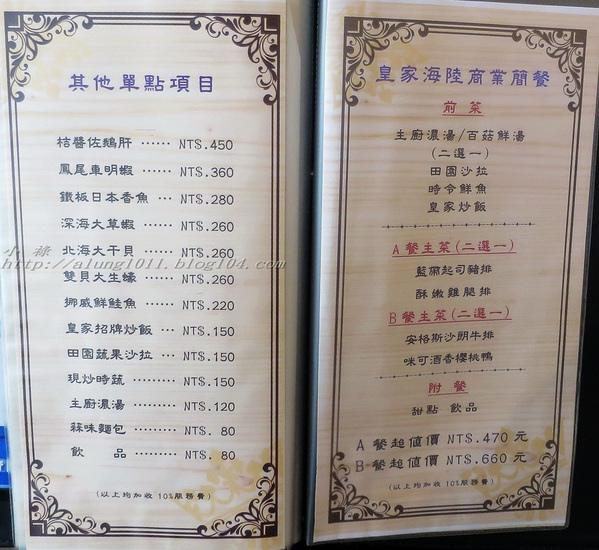 其他單點項目
桔醬佐鵝肝 ⋯⋯ NT$.450
鳳尾車明蝦 ⋯⋯ NT$.360
鐵板日本香魚 ⋯ NT$.280
深海大草蝦 ⋯⋯ NT$.260
北海大干貝 ⋯⋯ NT$.260
雙貝大生蠔 ⋯⋯ NT$.260
挪威鮮鮭魚 ⋯⋯ NT$.220
皇家招牌炒飯 ⋯ NT$.150
田園蔬果沙拉 ⋯ NT$.150
現炒時蔬 ⋯⋯⋯ NT$.150
主廚濃湯 ⋯⋯⋯ NT$.120
蒜味麵包 ⋯⋯⋯ NT$. 80
飲 品 ⋯⋯⋯ NT$. 80
(以上均加收 10%服務費)
小 祿
http://alung1011.blog104.com/
皇家海陸商業簡餐
前 菜
主廚濃湯/百菇鮮湯
(二選一)
田園沙拉
時令鮮魚
皇家炒飯
A 餐主菜(二選一)
藍帶起司豬排
酥嫩雞腿排
B 餐主菜(二選一)
安格斯沙朗牛排
咪可酒香櫻桃鴨
附 餐
甜點 飲品
A 餐超值價 NT$.470 元
B 餐超值價 NT$.660 元
(以上均加收 10%服務費)